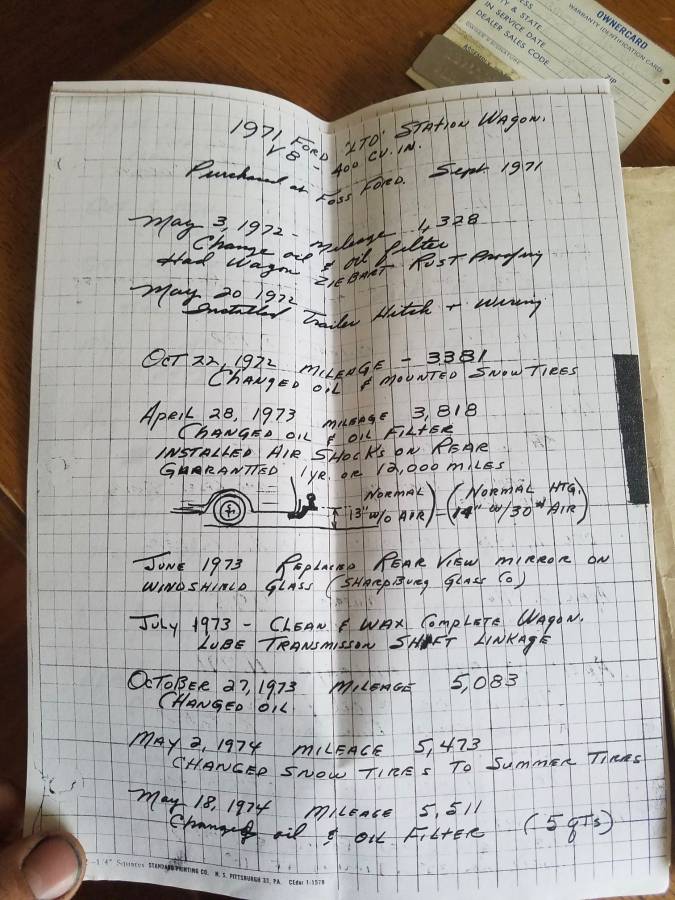 OWNERCARD
WARRANTY IDENTIFICATION CARD
Y & STATE
ZIP
IN SERVICE DATE
DEALER SALES CODE
1971 FORD 'LTD' STATION WAGON.
V8 - 400 CU. IN.
Purchased at FOSS FORD. Sept 1971
May 3, 1972 - Mileage 1,328
Change oil & oil filter
Had Wagon ZIEBART RUST Proofing
May 20 1972
Installed Trailer Hitch + Wiring
OCT 22, 1972 MILEAGE - 3381
CHANGED OIL & MOUNTED SNOW TIRES
APRIL 28, 1973 MILEAGE 3,818
CHANGED OIL & OIL FILTER
INSTALLED AIR SHOCKS ON REAR
GUARANTIED 1 YR. OR 12,000 MILES
NORMAL
13" W/O AIR) = (NORMAL HTG.
14" W/30# AIR)
JUNE 1973 REPLACED REAR VIEW MIRROR ON
WINDSHIELD GLASS (SHARPBURG GLASS CO)
JULY 1973 - CLEAN & WAX COMPLETE WAGON.
LUBE TRANSMISSON SHIFT LINKAGE
OCTOBER 27, 1973 MILEAGE 5,083
CHANGED OIL
MAY 2, 1974 MILEAGE 5,473
CHANGED SNOW TIRES TO SUMMER TIRES
May 18, 1974 MILEAGE 5,511
Changed oil & OIL FILTER (5 qTs)
-1/4" Squares STANDARD PRINTING CO. N. S. PITTSBURGH 33, PA. CEdar 1-1579